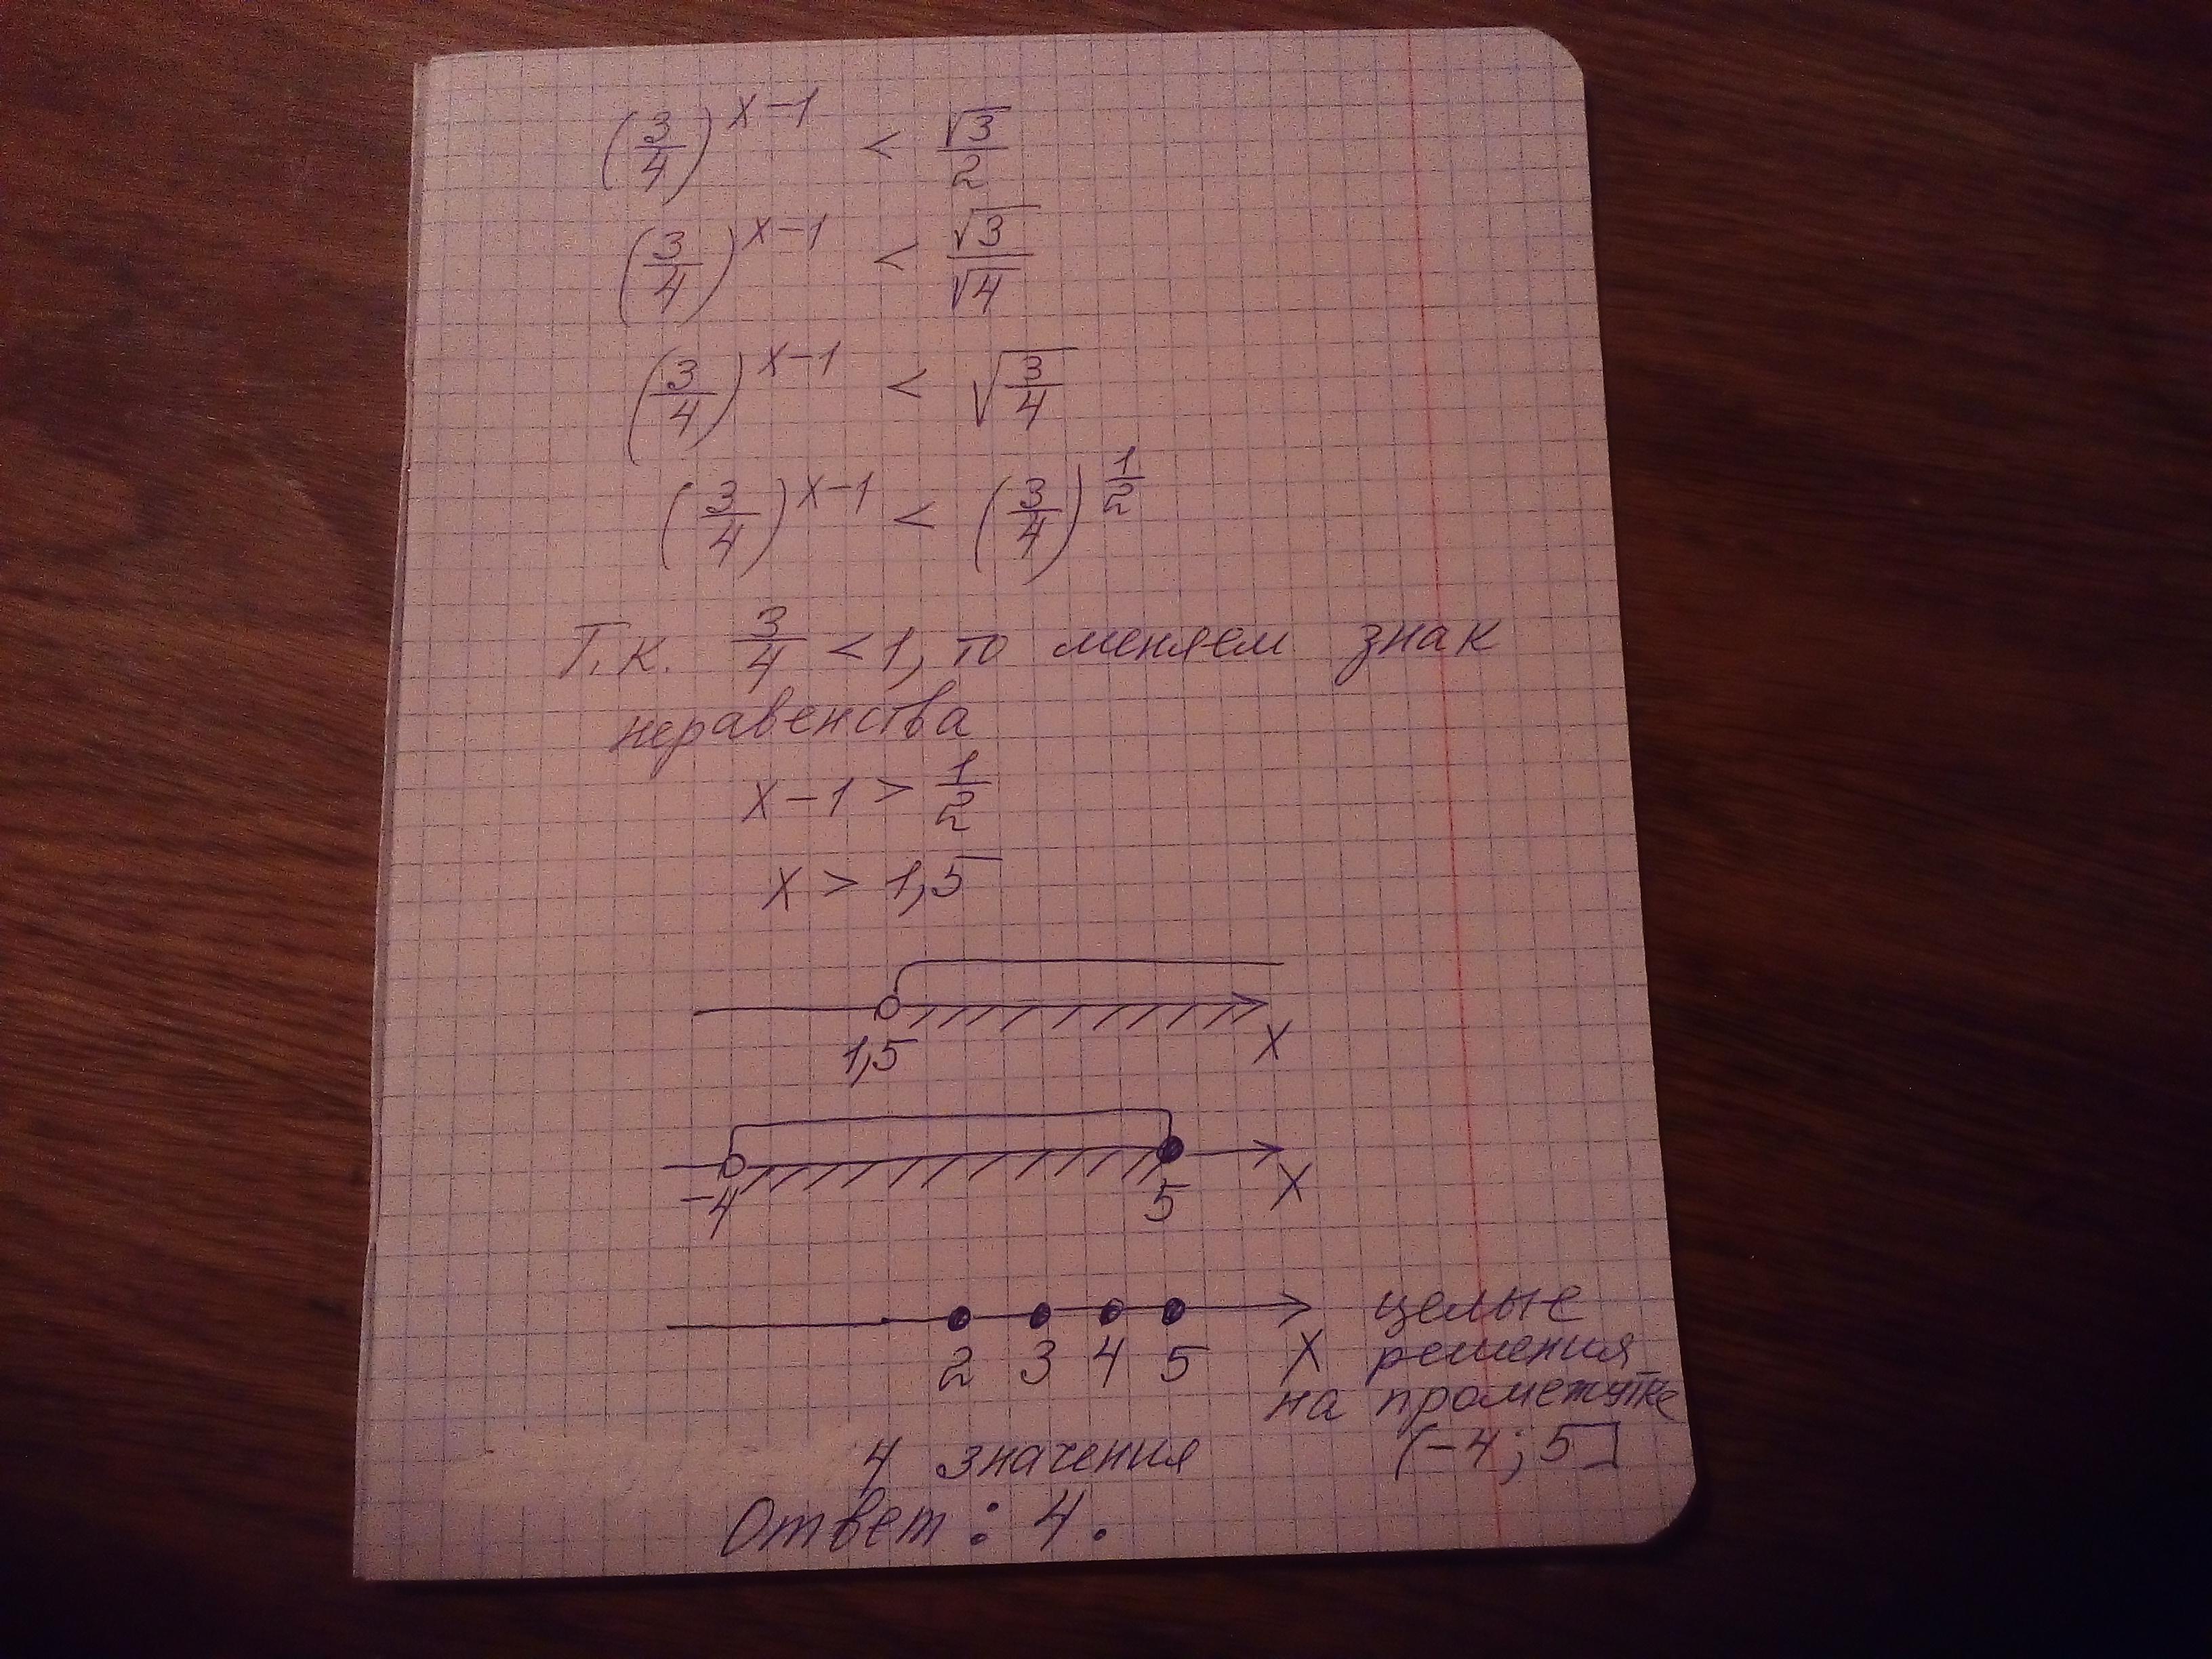 (3/4)^(x-1) < √3/2
(3/4)^(x-1) < √3/√4
(3/4)^(x-1) < √(3/4)
(3/4)^(x-1) < (3/4)^(1/2)
Т.к. 3/4 < 1, то меняем знак
неравенства
x-1 > 1/2
x > 1,5
1,5 x
-4 5 x
2 3 4 5 x целые
решения
на промежутке
(-4; 5]
4 значения
Ответ: 4.